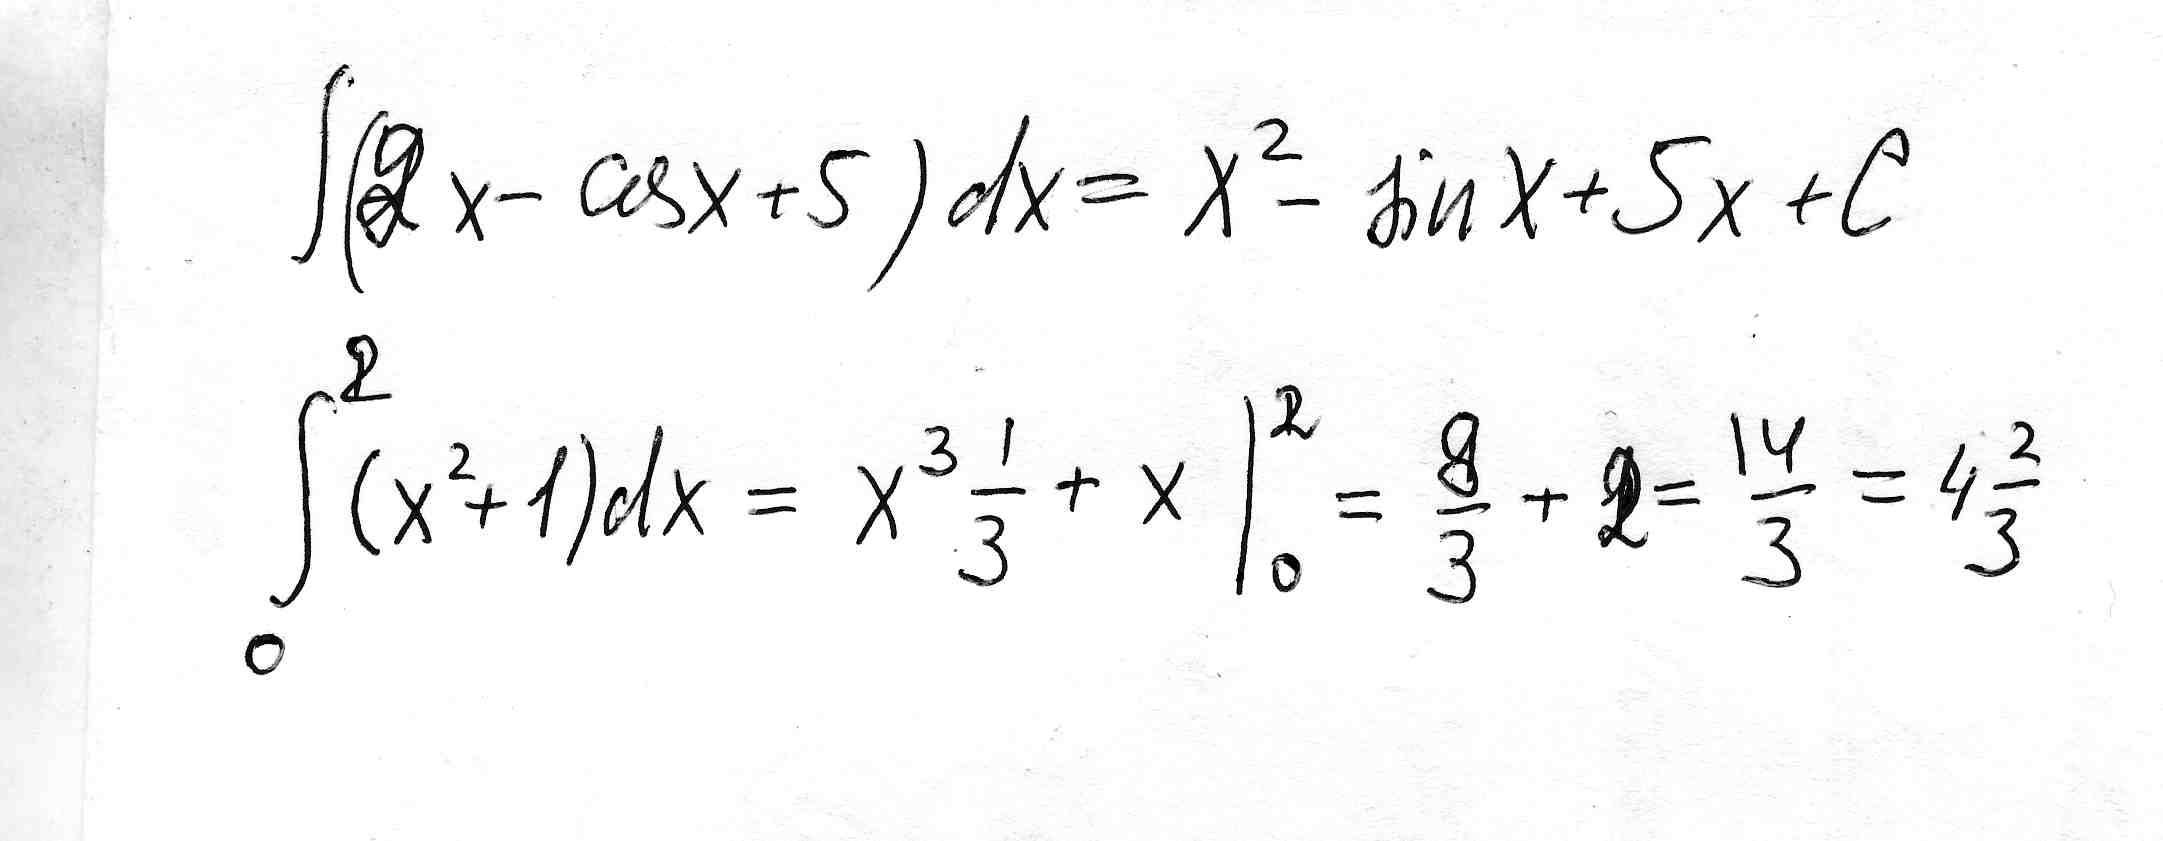 ∫(2x - cosx + 5)dx = x² - sin x + 5x + C
∫₀² (x² + 1)dx = x³ 1/3 + x |₀² = 8/3 + 2 = 14/3 = 4 2/3